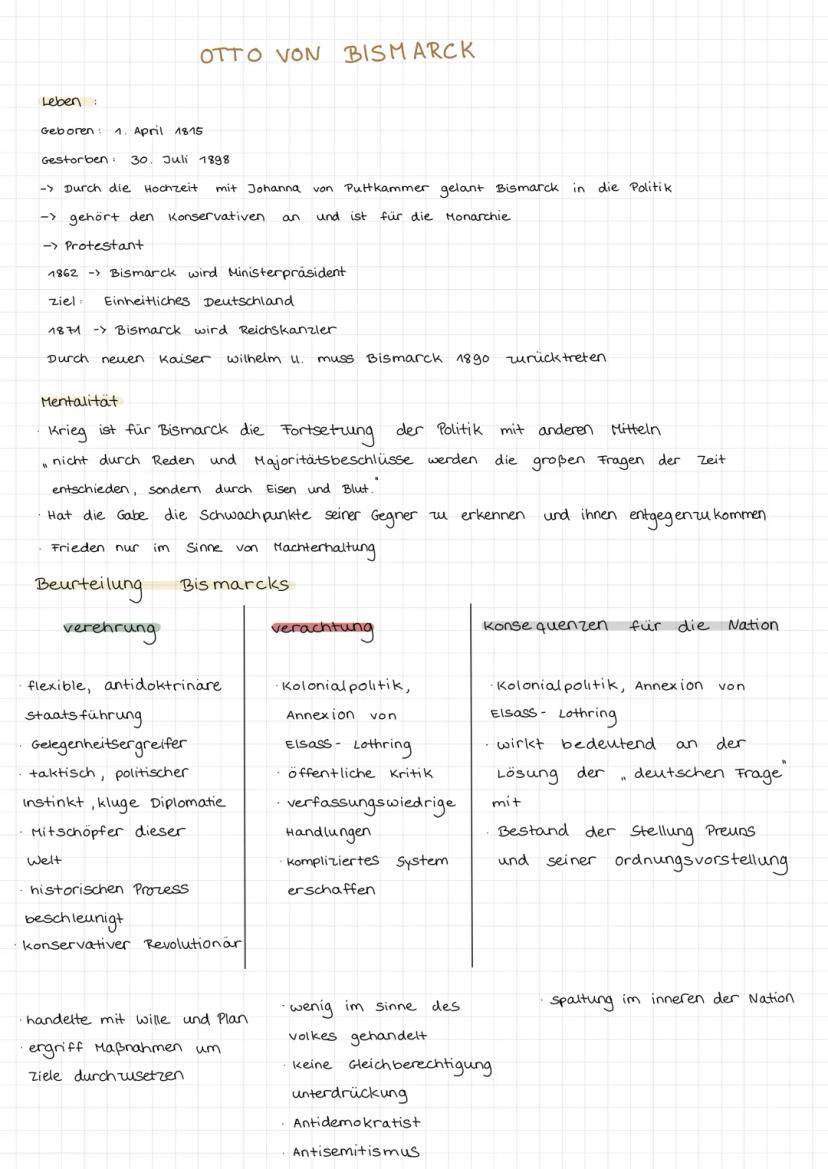 OTTO VON BISMARCK
Leben :
Geboren: 1. April 1815
Gestorben: 30. Juli 1898
-> Durch die Hochzeit mit Johanna von Puttkammer gelant Bismarck in die Politik
-> gehört den Konservativen an und ist für die Monarchie
-> Protestant
1862 -> Bismarck wird Ministerpräsident
Ziel: Einheitliches Deutschland
1871 -> Bismarck wird Reichskanzler
Durch neuen Kaiser Wilhelm II. muss Bismarck 1890 zurücktreten
Mentalität
· Krieg ist für Bismarck die Fortsetzung der Politik mit anderen Mitteln
„nicht durch Reden und Majoritätsbeschlüsse werden die großen Fragen der Zeit
entschieden, sondern durch Eisen und Blut."
· Hat die Gabe die Schwachpunkte seiner Gegner zu erkennen und ihnen entgegenzukommen
· Frieden nur im Sinne von Machterhaltung
Beurteilung Bismarcks
verehrung
· flexible, antidoktrinäre
Staatsführung
· Gelegenheitsergreifer
· taktisch, politischer
Instinkt, kluge Diplomatie
· Mitschöpfer dieser
Welt
· historischen Prozess
beschleunigt
· konservativer Revolutionär
· handelte mit Wille und Plan
· ergriff Maßnahmen um
Ziele durchzusetzen
verachtung
· Kolonialpolitik,
Annexion von
Elsass- Lothring
· öffentliche Kritik
· verfassungswiedrige
Handlungen
· kompliziertes System
erschaffen
· wenig im sinne des
volkes gehandelt
· keine Gleichberechtigung
unterdrückung
· Antidemokratist
· Antisemitismus
Konsequenzen für die Nation
· Kolonialpolitik, Annexion von
Elsass- Lothring
· wirkt bedeutend an der
Lösung der „deutschen Frage"
mit
· Bestand der Stellung Preuns
und seiner ordnungsvorstellung
· spaltung im inneren der Nation